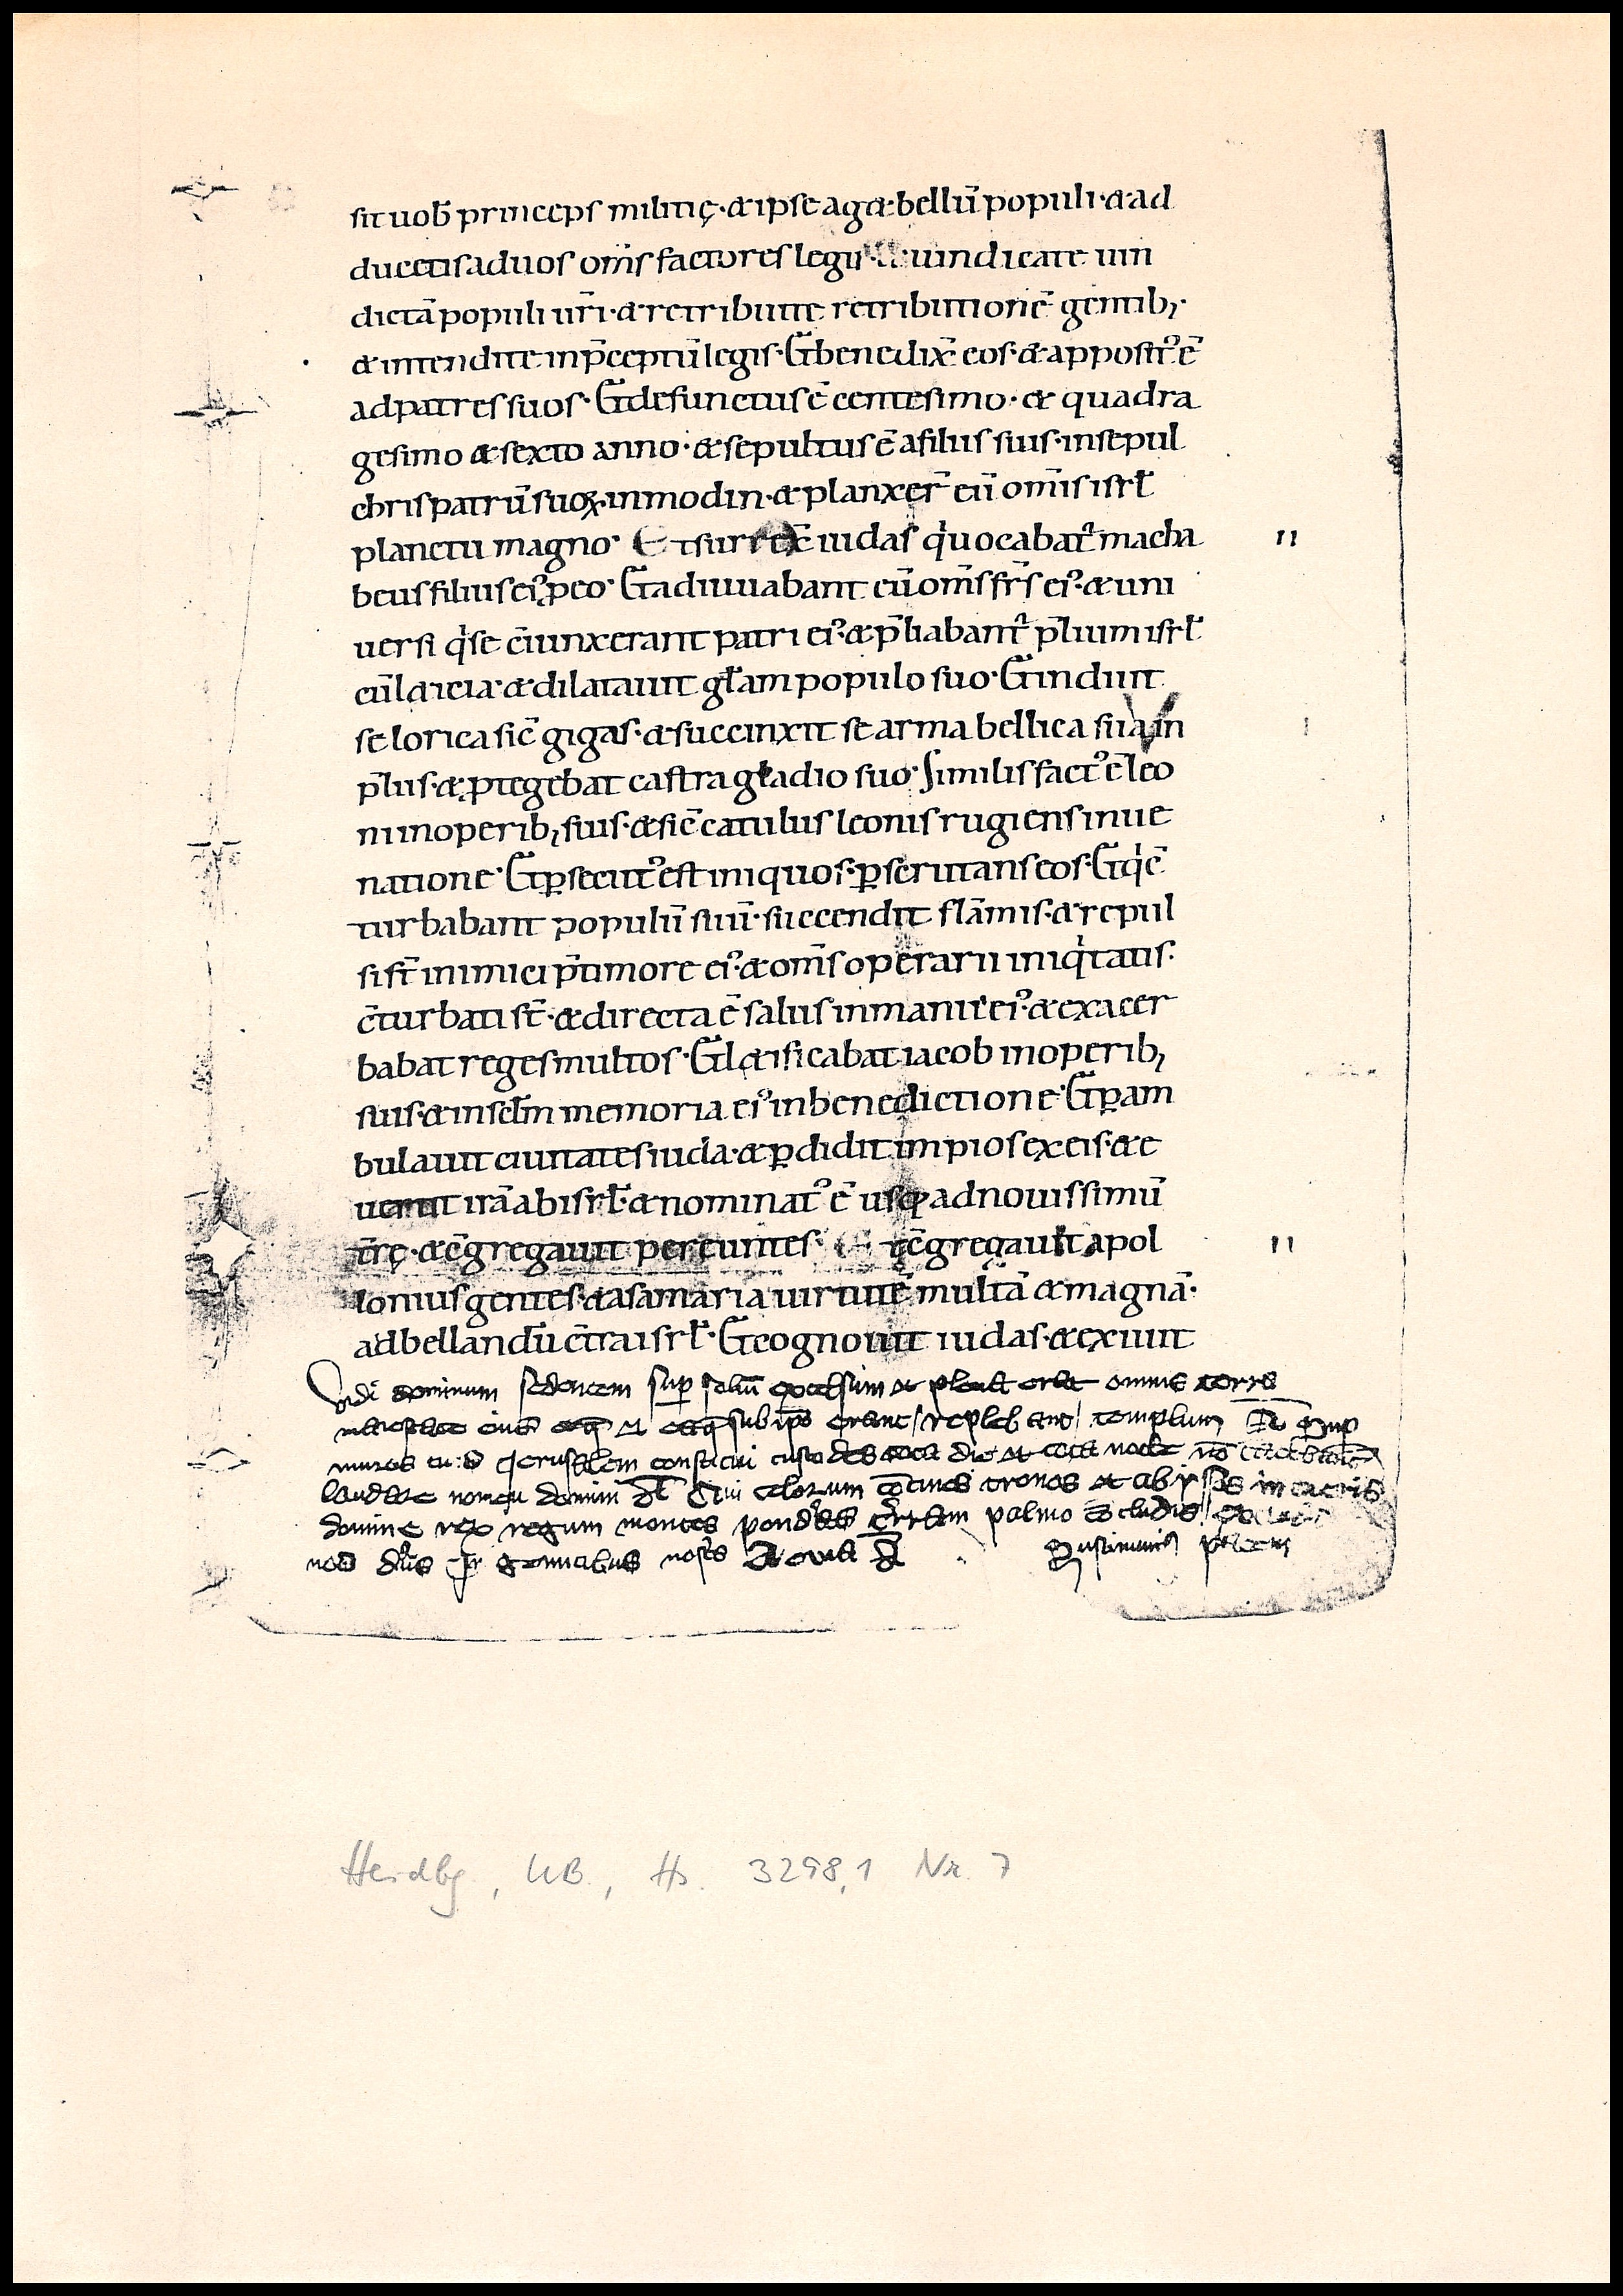 sit uob̄ princeps militię· & ipse ag&· bellū populi· & ad
ducetis ad uos om̄s factores legis· & uindicate uin
dictā populi ur̄i· & retribuite retributionē gentib;·
& intendite in p̄ceptū legis· Et benedix̄ eos· & appositꝰ ē
ad patres suos· Et defunctus ē centesimo· & quadra
gesimo & sexto anno· & sepultus ē a filiis suis· in sepul
chris patrū suoꝝ· in modin· & planxer̄ eū om̄is isrł
planctu magno· Et surrex̄ iudas q̇ uocabat᷑ macha
beus filius eiꝰ, ꝓ eo· Et adiuuabant eū om̄s fr̄s eiꝰ· & uni
uersi q̇ se c̄iunxerant patri eiꝰ· & p̄liabant᷑ p̄lium isrł
cū l&icia· & dilatauit gł̄am populo suo· Et induit
se lorica sic̄ gigas· & succinxit se arma bellica sua in
p̄liis· & ꝓtegebat castra gladio suo· Similis factꝰ ē leo
ni in operib; suis· & sic̄ catulus leonis rugiens in ue
natione· Et ꝑsecutꝰ est iniquos· ꝑscrutans eos· Et q̇ c̄
turbabant populū suū· succendit flāmis· & repul
si st̄ inimici p̄ timore eiꝰ· & om̄s operarii iniq̇tatis·
c̄turbati st̄· & directa ē salus in manu eiꝰ· & exacer
babat reges multos· Et l&ificabat iacob in operib;
suis· & in scł̄m memoria eiꝰ in benedictione· Et ꝑam
bulauit ciuitates iuda· & ꝑdidit impios ex eis· & e
uertit irā ab isrł· & nominatꝰ ē usq; ad nouissimū
t̄rę· & c̄gregauit pereuntes· Et c̄gregauit apol
lonius gentes· & a samaria uirtutē multā & magnā·
ad bellandū c̄tra isrł· Et cognouit iudas· & exiuit
Vidi dominum sedentem suꝑ soliū excelsum et plena erat omnis terra
eius et que sub ip̄o erant replebant templum
muros tuos Jerusalem constitui custodes tota die et tota nocte nō
laudare nomen domini Qui celorum c̄tines tronos et abissos
domine rex regum montes pond̓as t̓ram palmo c̄cludis
nos dn̄e In gemitibus nostris
Heidbg, UB, Hs. 3298,1 Nr. 7